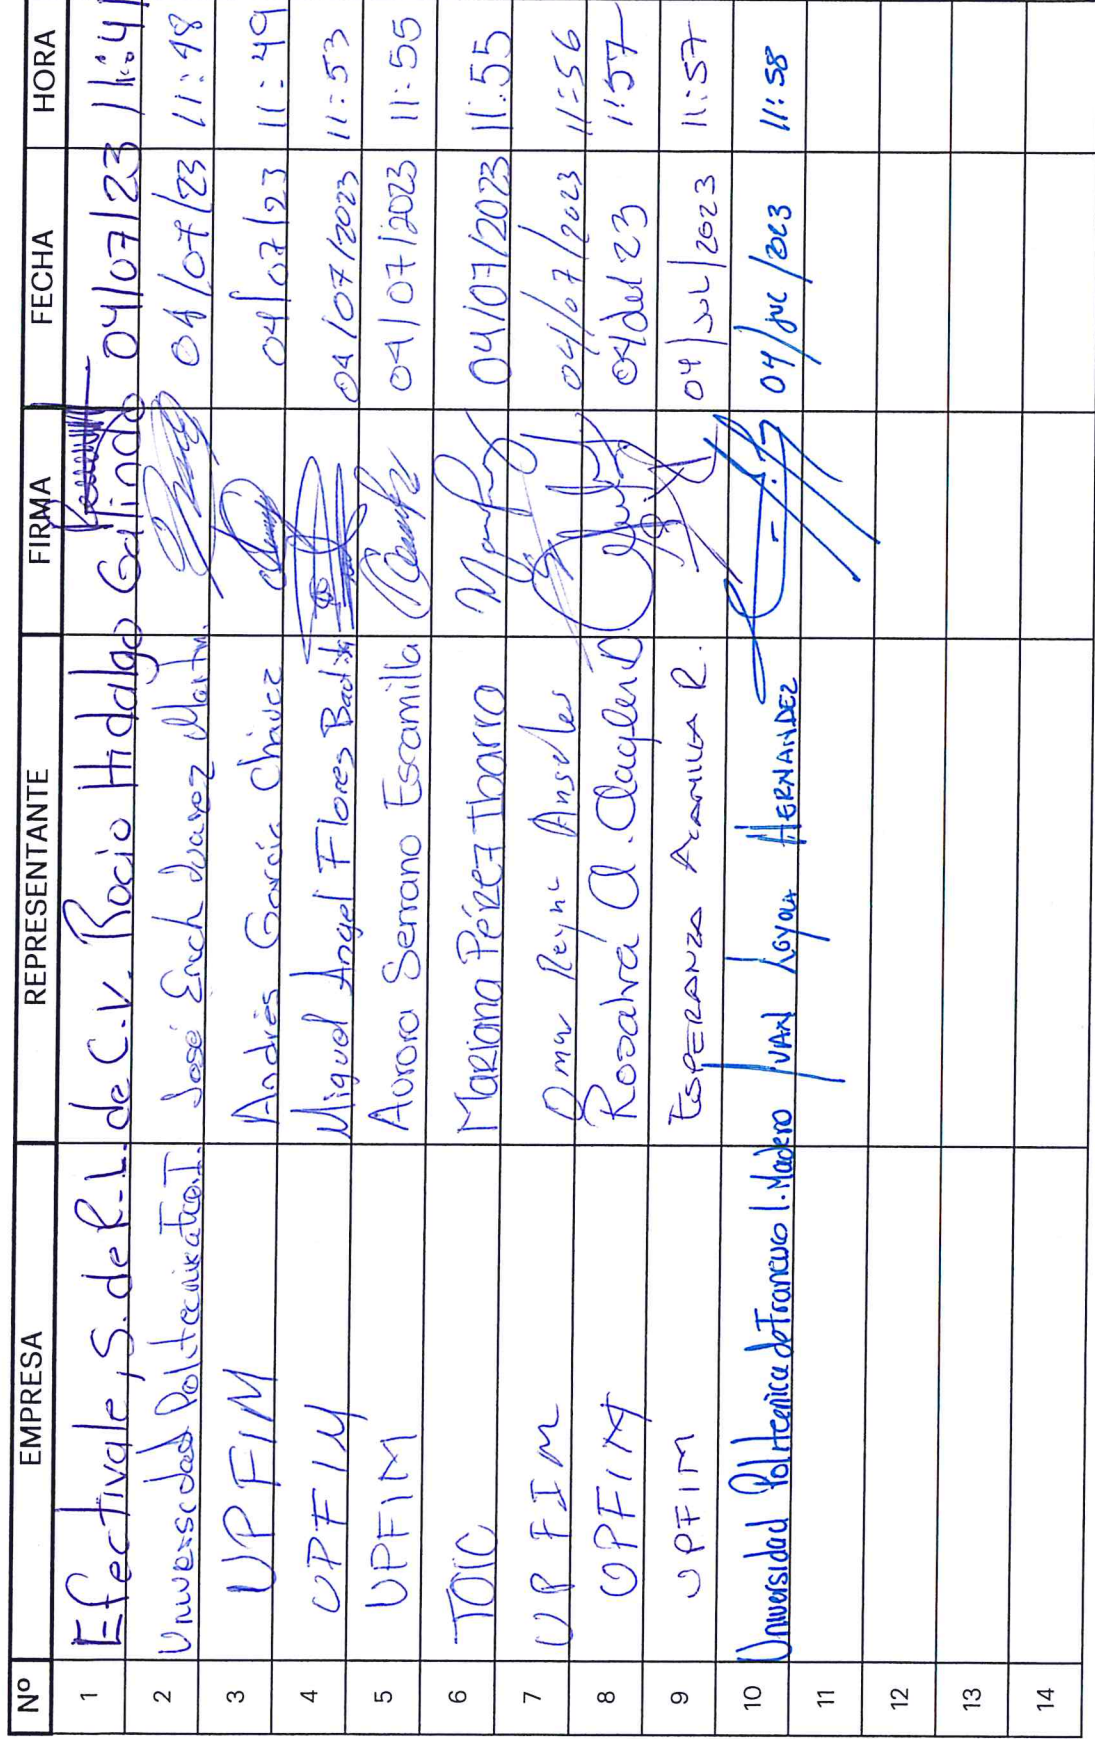 Nº EMPRESA REPRESENTANTE FIRMA FECHA HORA
1 Efectivale, S. de R.L. de C.V. Rocio Hidalgo Galindo 04/07/23 11:41
2 Universidad Politecnica José Erich Juarez Martin. 04/07/23 11:48
3 UPFIM Andrés García Chávez 04/07/23 11:49
4 UPFIM Miguel Angel Flores 04/07/2023 11:53
5 UPFIM Aurora Serrano Escamilla 04/07/2023 11:55
6 TOIC Mariana Pérez Ibarra 04/07/2023 11:55
7 UPFIM Omar Reyna Angeles 04/07/2023 11:56
8 UPFIM Rosalva A. 04 Jul 23 11:57
9 UPFIM ESPERANZA R. 04/JUL/2023 11:57
10 Universidad Politecnica de Francisco I. Madero JUAN Loyola HERNANDEZ 04/JUL/2023 11:58
11
12
13
14